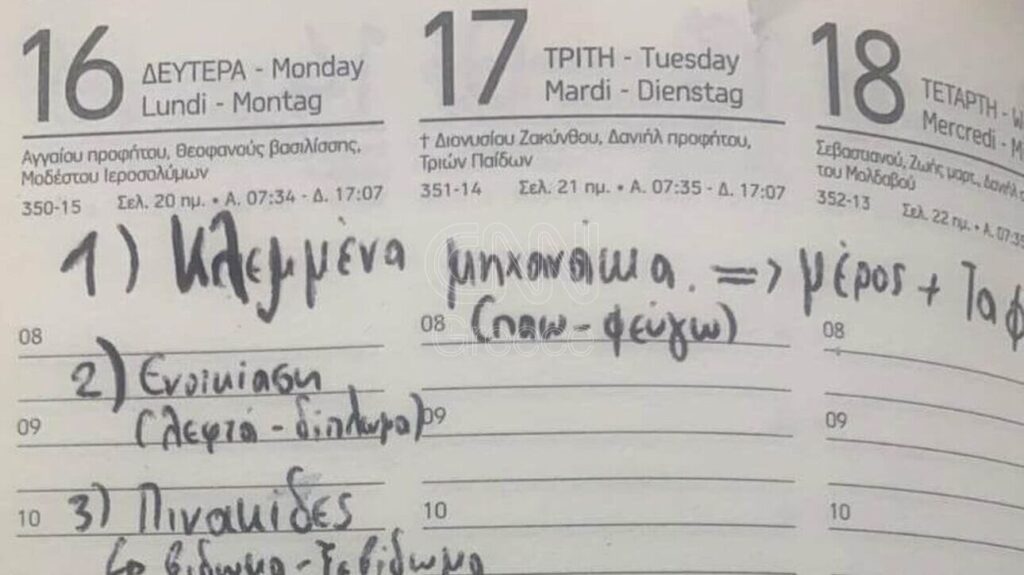 16 ΔΕΥΤΕΡΑ - Monday
Lundi - Montag
Αγγαίου προφήτου, Θεοφανούς βασιλίσσης,
Μοδέστου Ιεροσολύμων
350-15 Σελ. 20 ημ. • Α. 07:34 - Δ. 17:07
17 ΤΡΙΤΗ - Tuesday
Mardi - Dienstag
† Διονυσίου Ζακύνθου, Δανιήλ προφήτου,
Τριών Παίδων
351-14 Σελ. 21 ημ. • Α. 07:35 - Δ. 17:07
18 ΤΕΤΑΡΤΗ -
Mercredi -
Σεβαστιανού, Ζωής μαρτ., Δανιήλ
του Μολδαβού
352-13 Σελ. 22 ημ. • Α. 07:35
1) Κλεμμένα μηχανάκια. => μέρος + Τα φ
(παω - φεύγω)
08 08 08
2) Ενοικίαση
(λεφτά - δίπλωμα)
09 09 09
3) Πινακίδες
10 10 10
βίδωμα - ξεβίδωμα
CNN
Greece